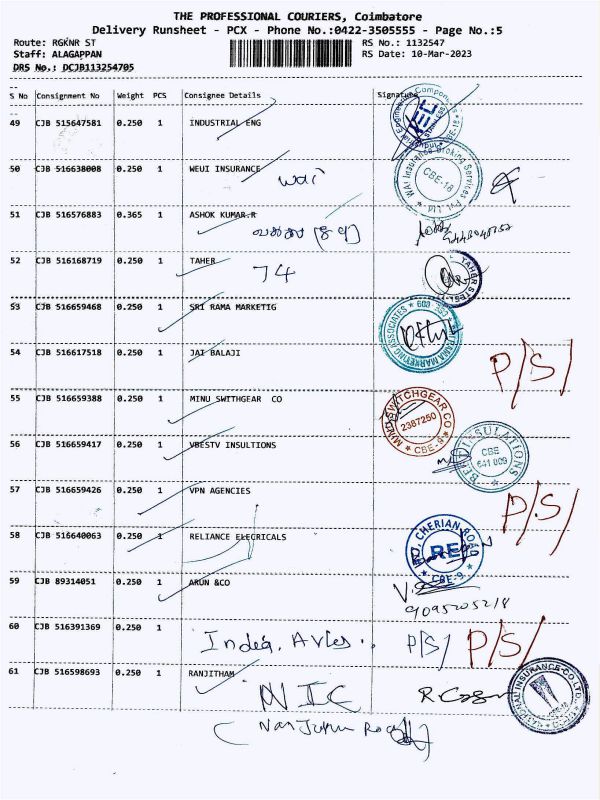 THE PROFESSIONAL COURIERS, Coimbatore
Delivery Runsheet - PCX - Phone No.:0422-3505555 - Page No.:5
Route: RGKNR ST RS No.: 1132547
Staff: ALAGAPPAN RS Date: 10-Mar-2023
DRS No.: DCJB113254705
S No Consignment No Weight PCS Consignee Details Signature
49 CJB 515647581 0.250 1 INDUSTRIAL ENG
50 CJB 516638008 0.250 1 WEUI INSURANCE
wai
CBE-18
51 CJB 516576883 0.365 1 ASHOK KUMAR.R
52 CJB 516168719 0.250 1 TAHER
74
TAHER STEEL
53 CJB 516659468 0.250 1 SRI RAMA MARKETIG
54 CJB 516617518 0.250 1 JAI BALAJI P/S/
55 CJB 516659388 0.250 1 MINU SWITHGEAR CO
MINU SWITCHGEAR CO
2387250
CBE-9
56 CJB 516659417 0.250 1 VBESTV INSULTIONS
BEST INSULATIONS
CBE
641 009
57 CJB 516659426 0.250 1 VPN AGENCIES P/S/
58 CJB 516640063 0.250 1 RELIANCE ELECRICALS
CHERIAN ROAD
RE
CBE-9
59 CJB 89314051 0.250 1 ARUN &CO
9095205218
60 CJB 516391369 0.250 1 P/S/ P/S/
61 CJB 516598693 0.250 1 RANJITHAM
NIC
NATIONAL INSURANCE CO.LTD.